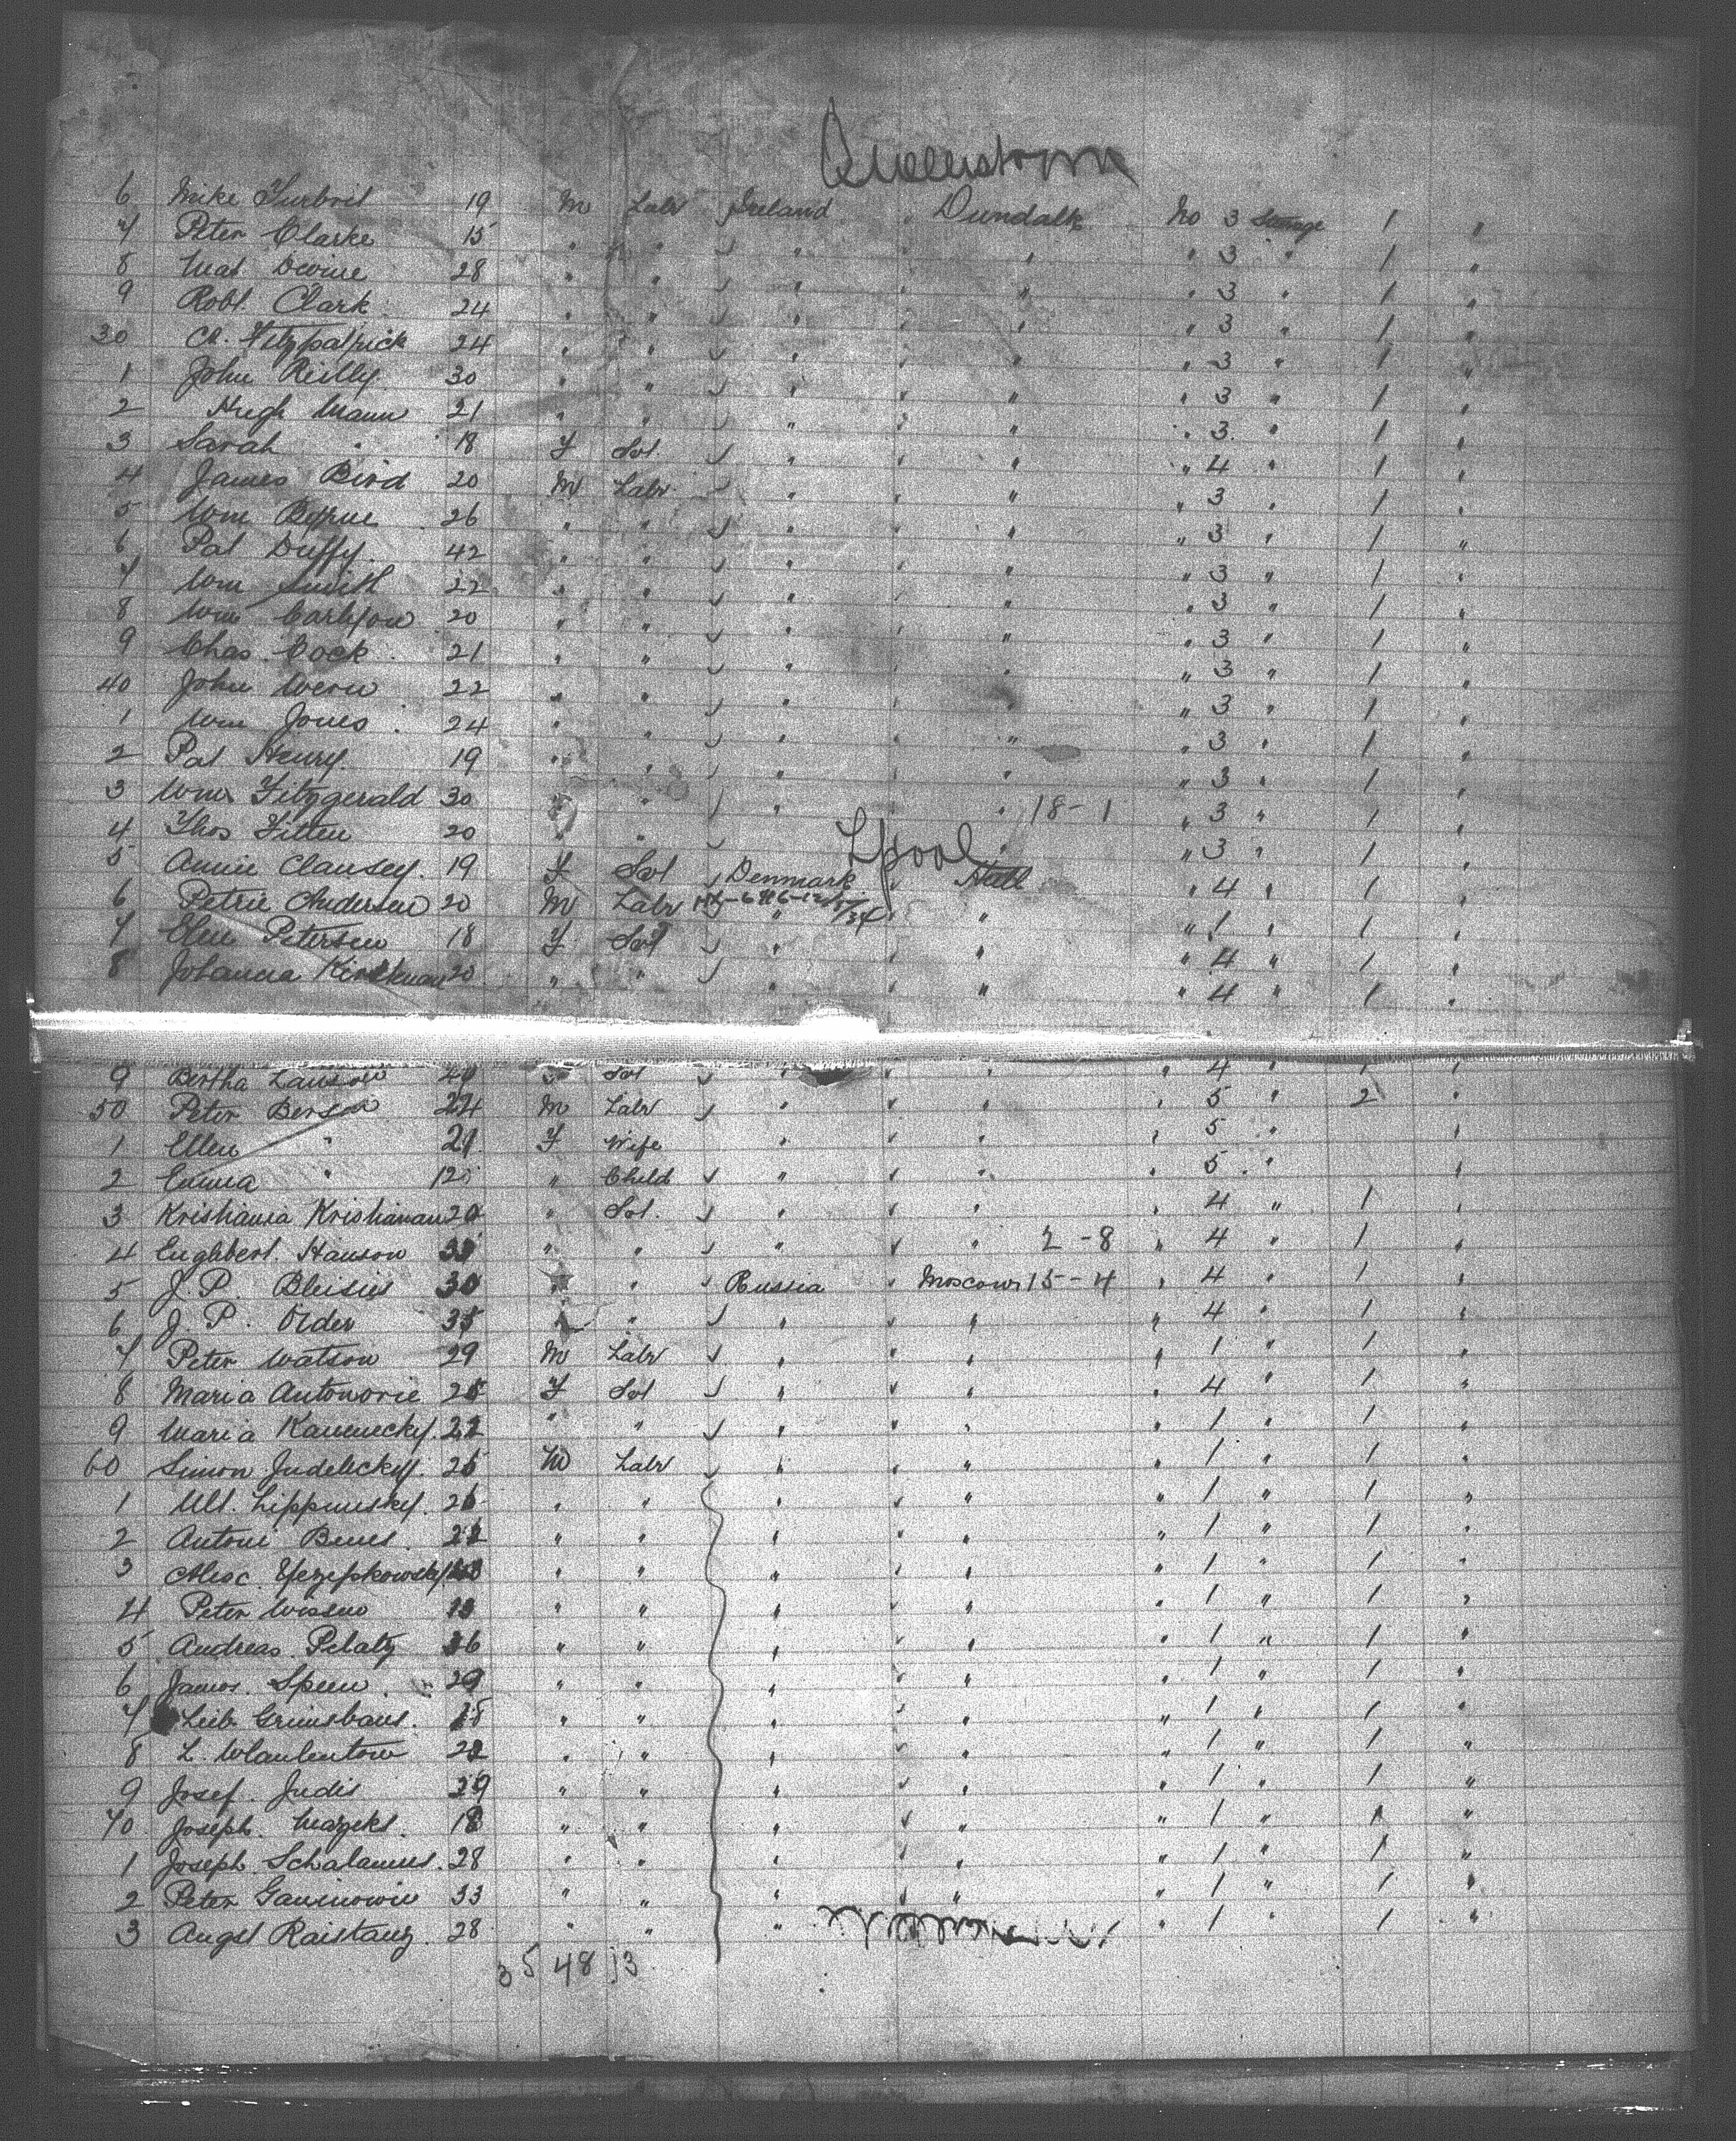 Queenstown
6 Mike Turboil 19 M Labr Ireland Dundalk No 3 Steerage 1 "
7 Peter Clarke 15 " " " " " 3 " 1 "
8 Mat Devine 28 " " " " " 3 " 1 "
9 Robt. Clark 24 " " " " " 3 " 1 "
30 Ch. Fitzpatrick 24 " " " " " 3 " 1 "
1 John Reilly 30 " " " " " 3 " 1 "
2 Hugh Mann 21 " " " " " 3 " 1 "
3 Sarah " 18 F Svt " " " 4 " 1 "
4 James Bird 20 M Labr " " " 3 " 1 "
5 Wm Byrne 26 " " " " " 3 " 1 "
6 Pat Duffy 42 " " " " " 3 " 1 "
7 Wm Smith 22 " " " " " 3 " 1 "
8 Wm Carlton 20 " " " " " 3 " 1 "
9 Chas. Cock 21 " " " " " 3 " 1 "
40 John Wern 22 " " " " " 3 " 1 "
1 Wm Jones 24 " " " " " 3 " 1 "
2 Pat Henry 19 " " " " " 3 " 1 "
3 Wm Fitzgerald 30 " " " " 18-1 " 3 " 1 "
4 Thos Fitten 20 " " " " " 3 " 1 "
Lpool
5 Annie Clausey 19 F Svt Denmark Hull " 4 " 1 "
6 Petrie Andersen 20 M Labr " " " 1 " 1 "
7 Elen Petersen 18 F Svt " " " 4 " 1 "
8 Johanna Kirekman 20 " " " " " 4 " 1 "
9 Bertha Lauson " Svt " " " 4 " 1 "
50 Peter Berson 24 M Labr " " " 5 " 2 "
1 Ellen " 21 F Wife " " " 5 " "
2 Emma " 12 " Child " " " 5 " "
3 Krishania Krishanan 20 " Svt. " " " 4 " 1 "
4 Enghbert. Hanson " " " " 2-8 " 4 " 1 "
5 J. P. Bleisies 30 " Russia Moscow 15-4 " 4 " 1 "
6 J. P. Older 35 " " " " 4 " 1 "
7 Peter Watson 29 M Labr " " " 1 " 1 "
8 Maria Antonovie 25 F Svt " " " 4 " 1 "
9 Maria Kamenecky. 22 " " " " " 1 " 1 "
60 Simon Judelecky. 25 M Labr " " " 1 " 1 "
1 Ult. Lippunsky. 26 " " " " " 1 " 1 "
2 Antoni Bunes. 22 " " " " " 1 " 1 "
3 " " " " " 1 " 1 "
4 Peter " " " " " 1 " 1 "
5 Andreas. Pelaty 26 " " " " " 1 " 1 "
6 James. Speen. 29 " " " " " 1 " 1 "
7 Leib Grinsbaus. " " " " " 1 " 1 "
8 L. 22 " " " " " 1 " 1 "
9 Josef. Judis 29 " " " " " 1 " 1 "
70 Joseph. Mazeks. 18 " " " " " 1 " 1 "
1 Joseph. Schalamus. 28 " " " " " 1 " 1 "
2 Peter Gausinowie 33 " " " " " 1 " 1 "
3 Augst Raistanz. 28 " " " " 1 " 1 "
35 48 13